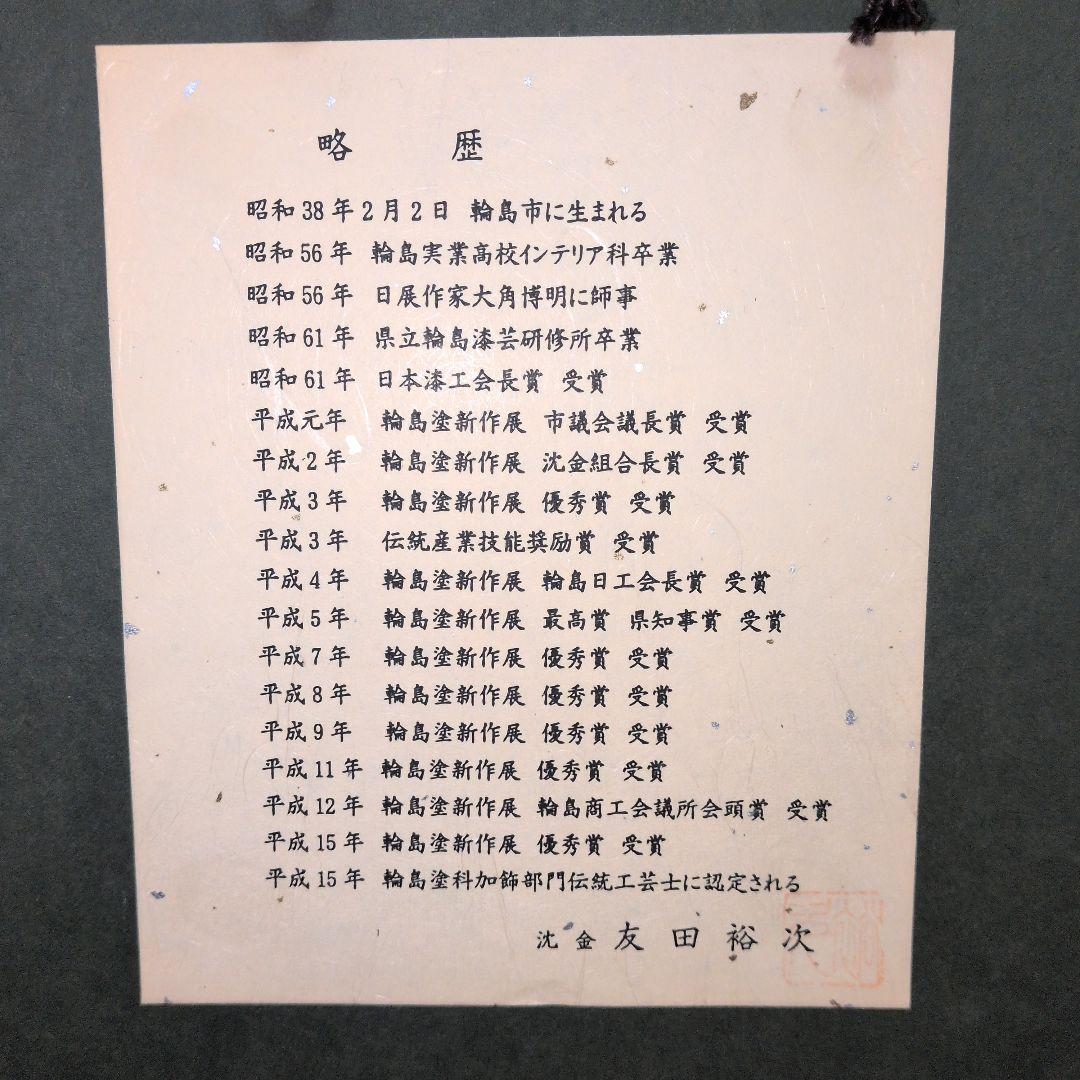 略歴
昭和38年2月2日 輪島市に生まれる
昭和56年 輪島実業高校インテリア科卒業
昭和56年 日展作家大角博明に師事
昭和61年 県立輪島漆芸研修所卒業
昭和61年 日本漆工会長賞 受賞
平成元年 輪島塗新作展 市議会議長賞 受賞
平成2年 輪島塗新作展 沈金組合長賞 受賞
平成3年 輪島塗新作展 優秀賞 受賞
平成3年 伝統産業技能奨励賞 受賞
平成4年 輪島塗新作展 輪島日工会長賞 受賞
平成5年 輪島塗新作展 最高賞 県知事賞 受賞
平成7年 輪島塗新作展 優秀賞 受賞
平成8年 輪島塗新作展 優秀賞 受賞
平成9年 輪島塗新作展 優秀賞 受賞
平成11年 輪島塗新作展 優秀賞 受賞
平成12年 輪島塗新作展 輪島商工会議所会頭賞 受賞
平成15年 輪島塗新作展 優秀賞 受賞
平成15年 輪島塗科加飾部門伝統工芸士に認定される
沈金 友田裕次